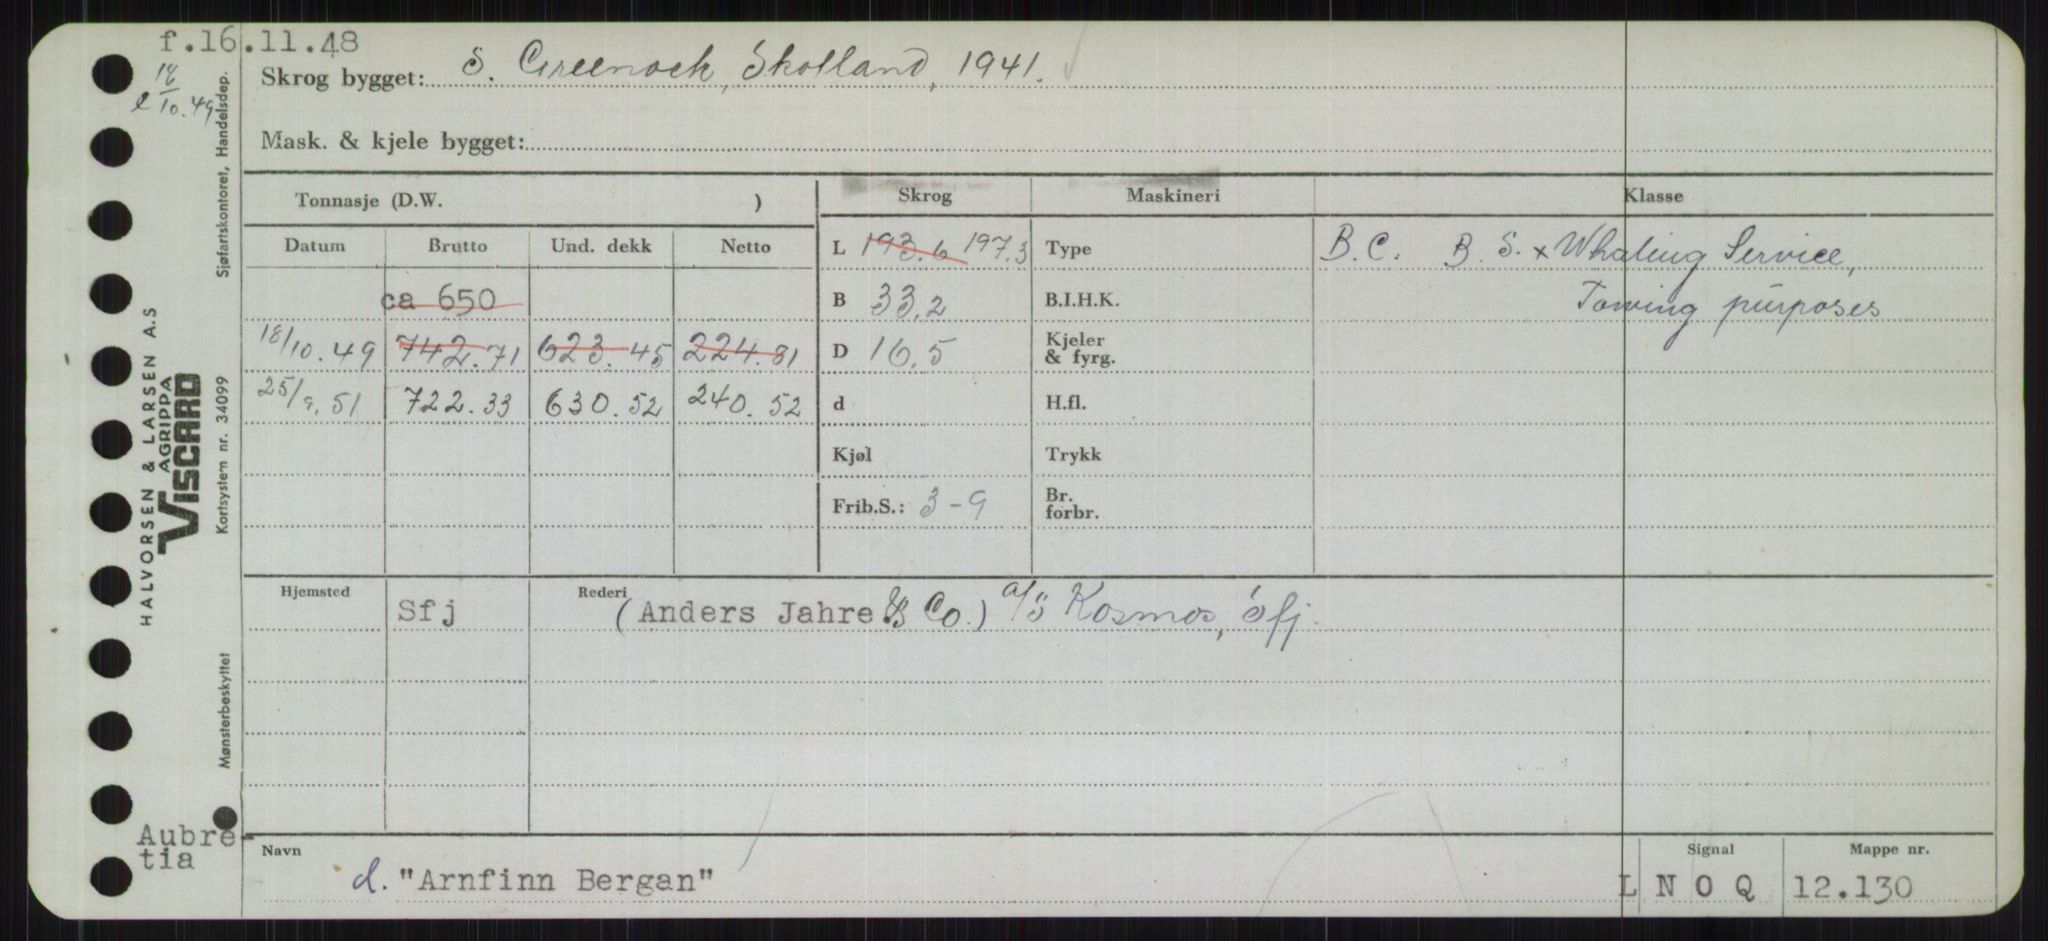 f.16.11.48
18
l 10.49
Skrog bygget: S. Greenock, Skotland, 1941.
Mask. & kjele bygget:
Tonnasje (D.W. )
Skrog Maskineri Klasse
Datum Brutto Und. dekk Netto
L 193.6 197.3 Type B.C. B. S. x Whaling Service,
ca 650 B 33,2 B.I.H.K. Towing purposes
18/10.49 742.71 623.45 224.81 D 16,5 Kjeler & fyrg.
25/9.51 722.33 630.52 240.52 d H.fl.
Kjøl Trykk
Frib.S.: 3-9 Br. forbr.
Hjemsted Rederi
Sfj (Anders Jahre & Co.) A/S Kosmos, Sfj.
Navn Signal Mappe nr.
d. "Arnfinn Bergan" L N O Q 12.130
Aubre-
tia
Sjøfartskontoret, Handelsdep.
HALVORSEN & LARSEN A.S
AGRIPPA
VISCARD
Kortsystem nr. 34099
Mønsterbeskyttet